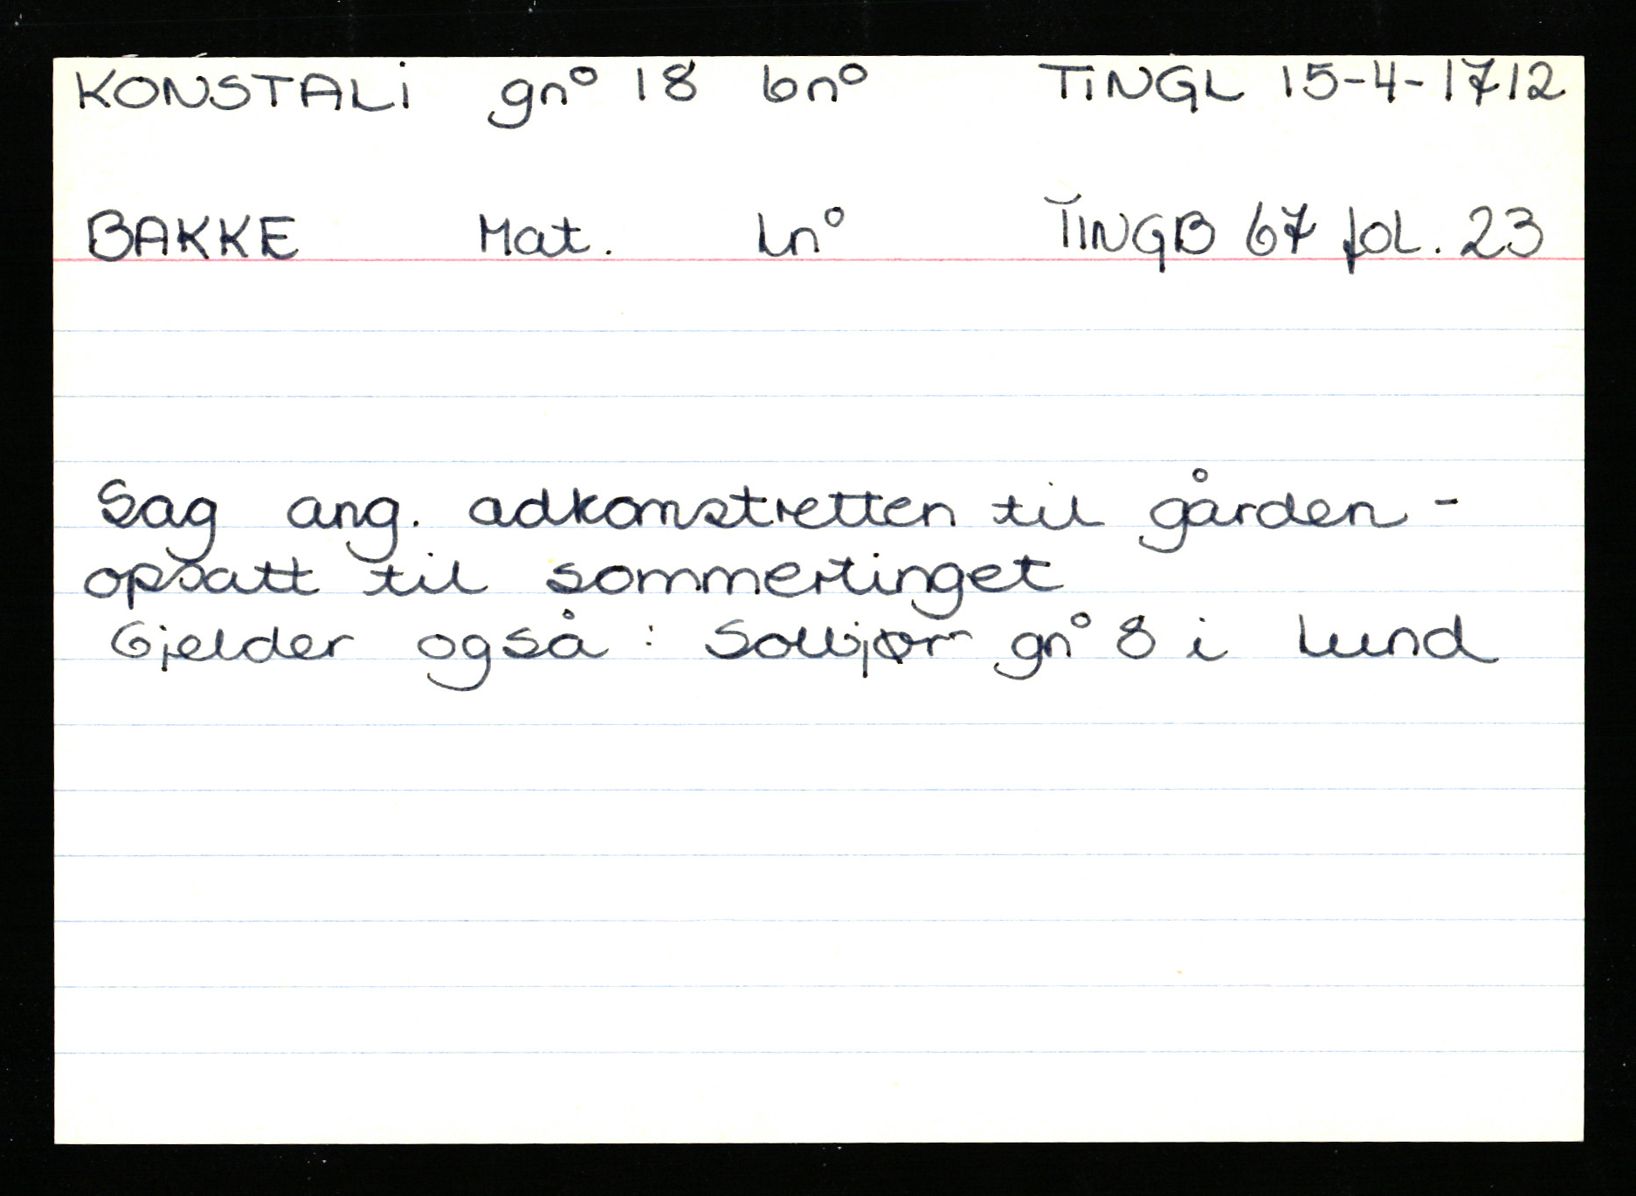 KONSTALI gnº 18 bnº TINGL 15-4-1712
BAKKE Mat. Lnº TINGB 67 fol. 23
Sag ang. adkomstretten til gården -
opsatt til sommertinget
Gjelder også : Solbjør gnº 8 i Lund